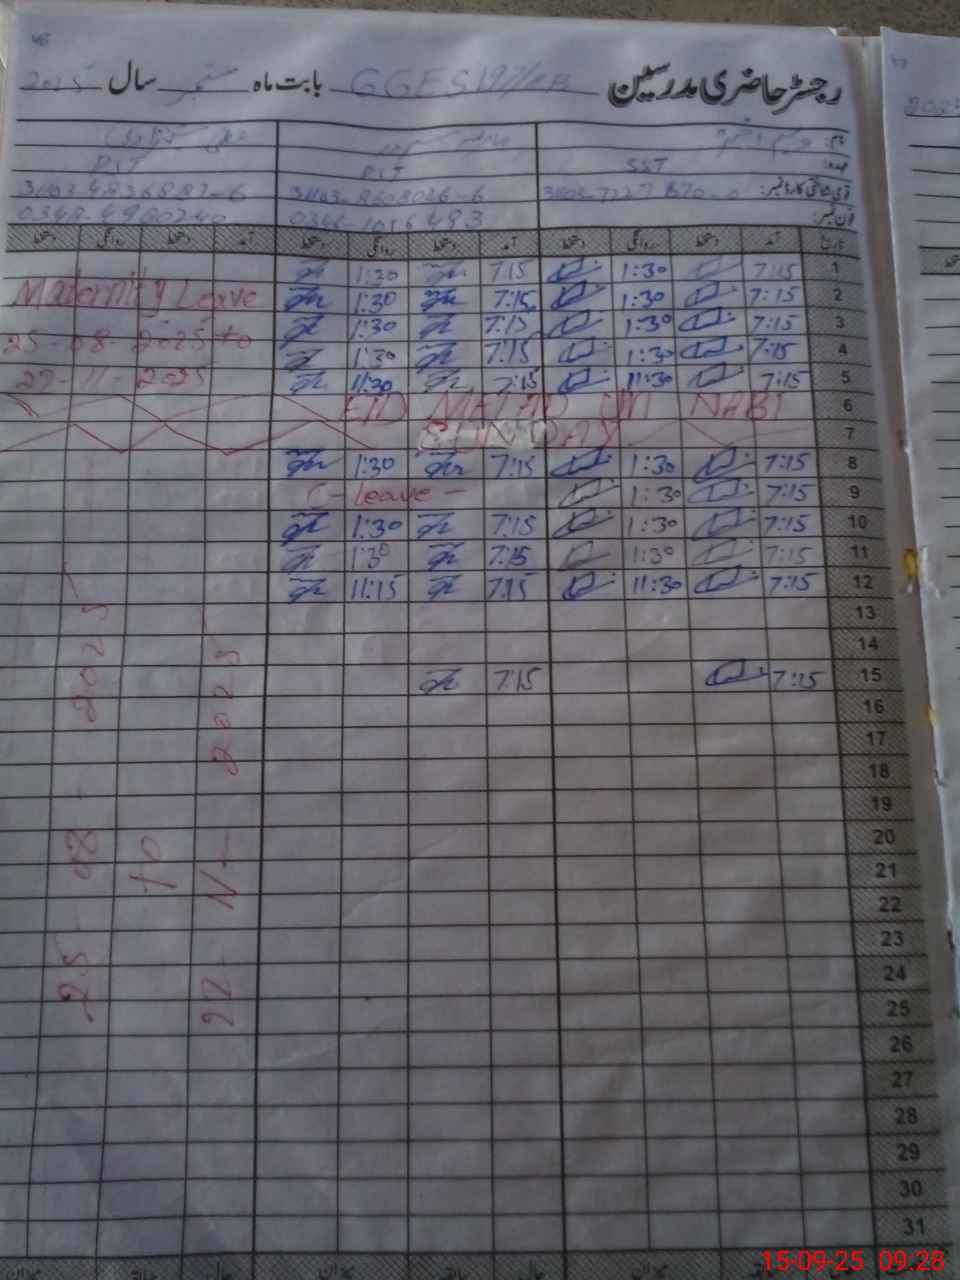 رجسٹر حاضری مدرسین GGES بابت ماہ ستمبر سال 2025
نام:
عہدہ: SST PST PST
قومی شناختی کارڈ نمبر: 31103-8608026-6 31103-4836882-6
فون نمبر: 0348-4980240
تاریخ آمد دستخط روانگی دستخط آمد دستخط روانگی دستخط آمد دستخط روانگی دستخط
1 7:15 1:30 7:15 1:30
2 7:15 1:30 7:15 1:30 Maternity Leave
3 7:15 1:30 7:15 1:30 25-08-2025 to
4 7:15 1:30 7:15 1:30
5 7:15 11:30 7:15 11:30 22-11-2025
6 EID MEELAD UN NABI
7 SUNDAY
8 7:15 1:30 7:15 1:30
9 7:15 1:30 C-leave-
10 7:15 1:30 7:15 1:30
11 7:15 1:30 7:15 1:30
12 7:15 11:30 7:15 11:15
13
14
15 7:15 7:15
16
17
18
19
20
21
22
23
24
25
26
27
28
29
30
31
25-08-2025
to
22-11-2025
15-09-25 09:28